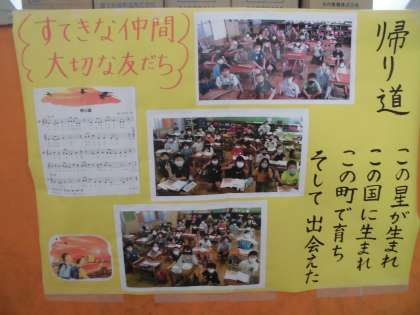 すてきな仲間
大切な友だち
帰り道
この星が生まれ
この国に生まれ
この町で育ち
そして 出会えた